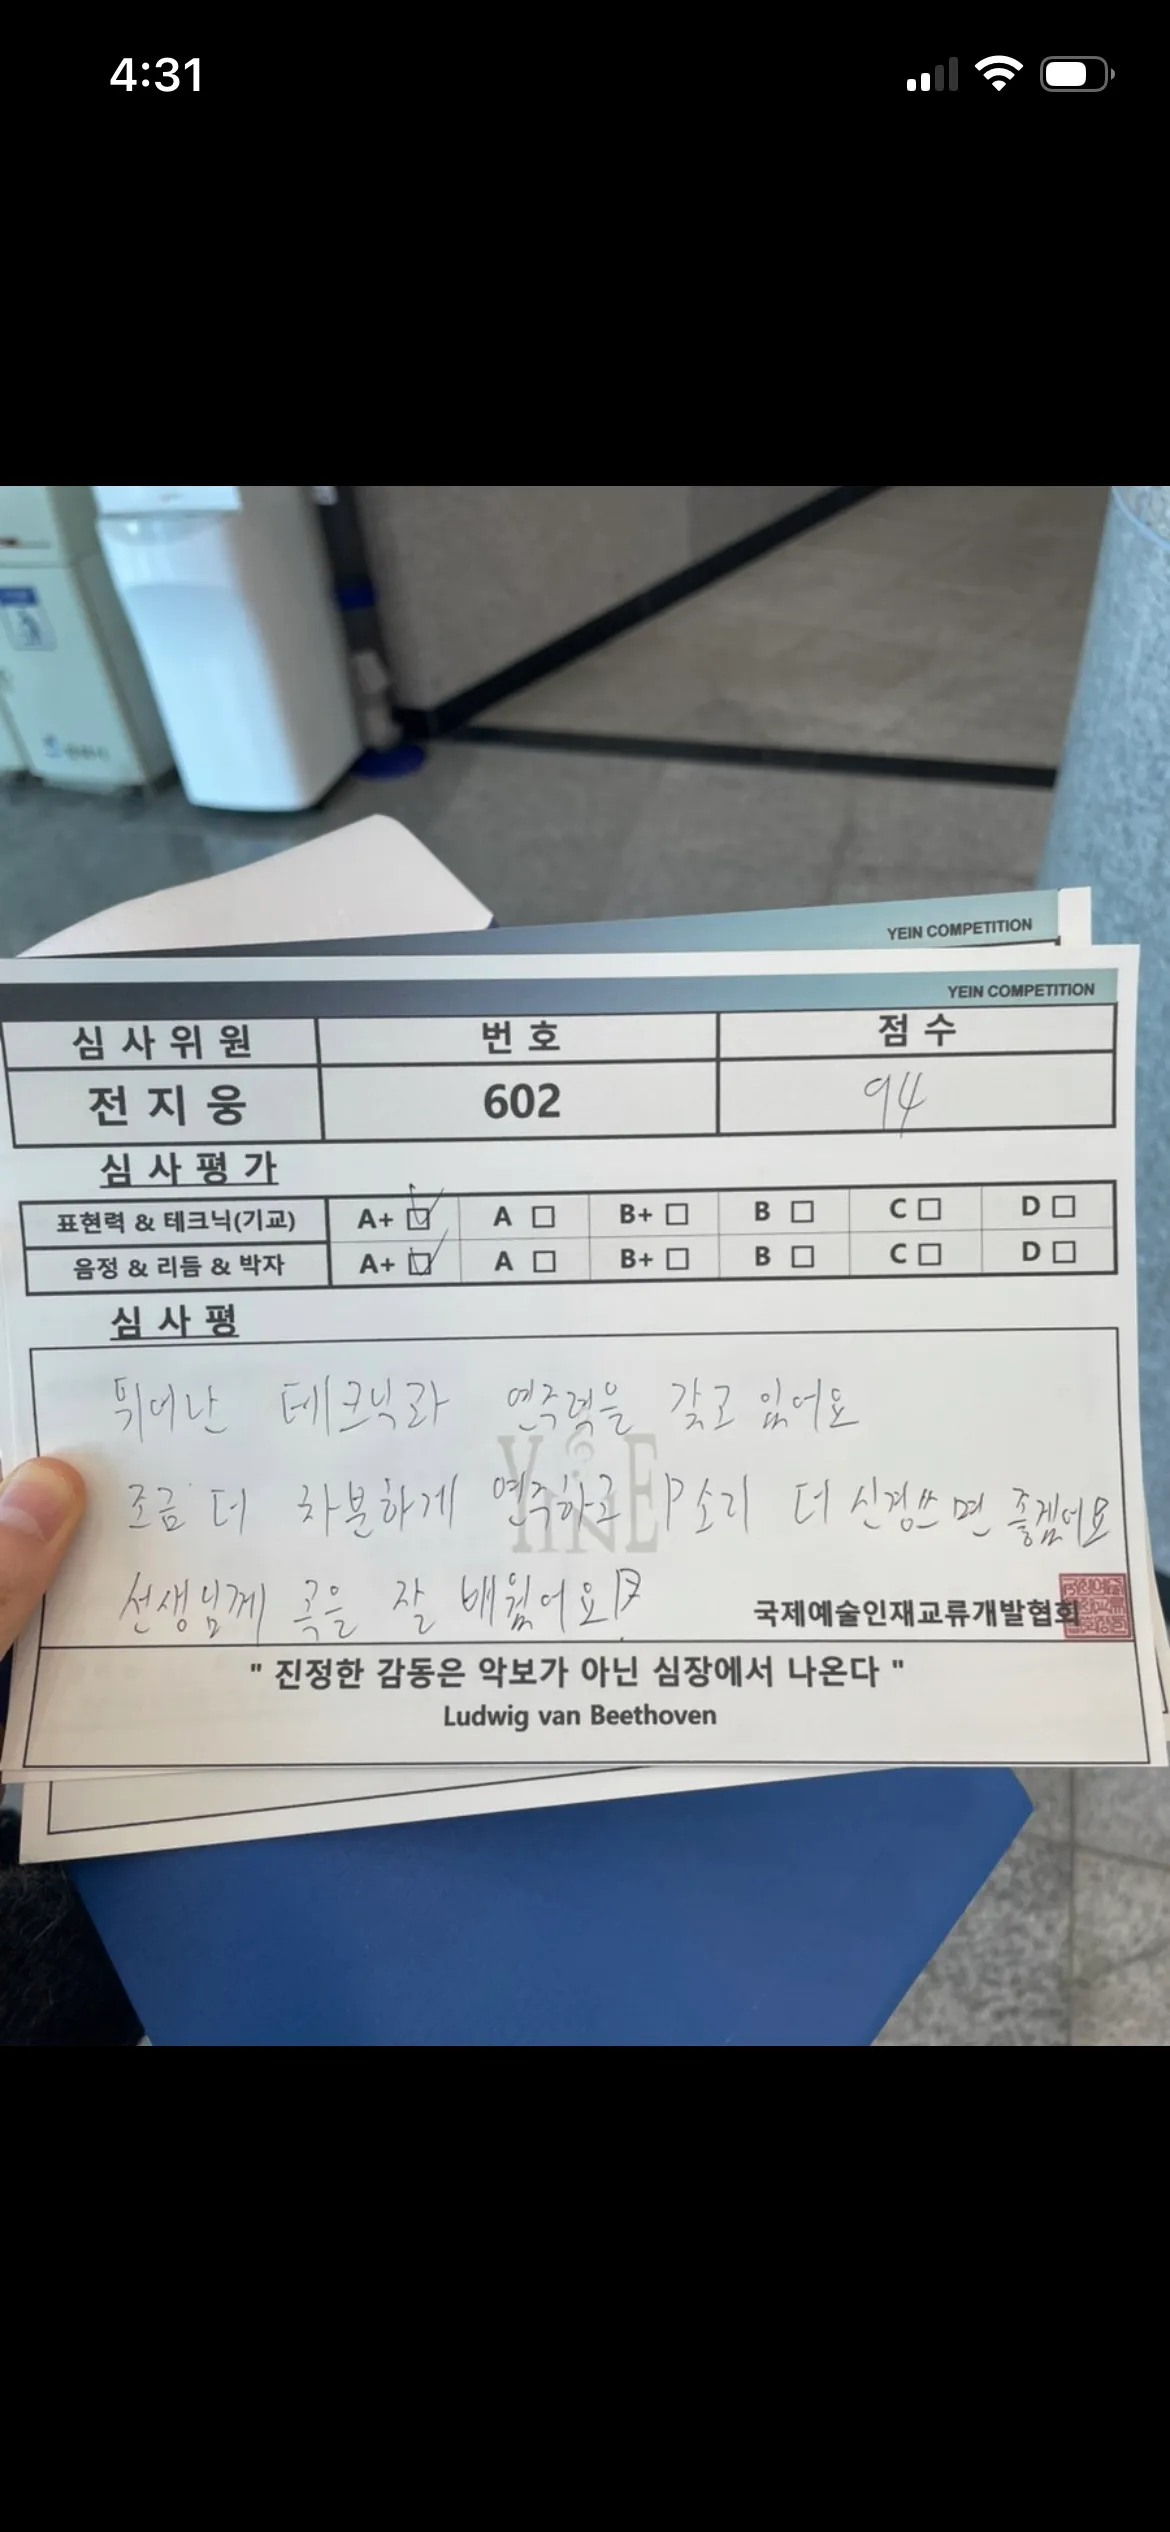 4:31
YEIN COMPETITION
YEIN COMPETITION
심사위원 번호 점수
전지웅 602 94
심사평가
표현력 & 테크닉(기교) A+ A B+ B C D
음정 & 리듬 & 박자 A+ A B+ B C D
심사평
튀어난 테크닉과 연주력을 갖고 있어요
조금 더 차분하게 연주하고 P소리 더 신경쓰면 좋겠어요
선생님께 곡을 잘 배웠어요
YEIN
국제예술인재교류개발협회
" 진정한 감동은 악보가 아닌 심장에서 나온다 "
Ludwig van Beethoven